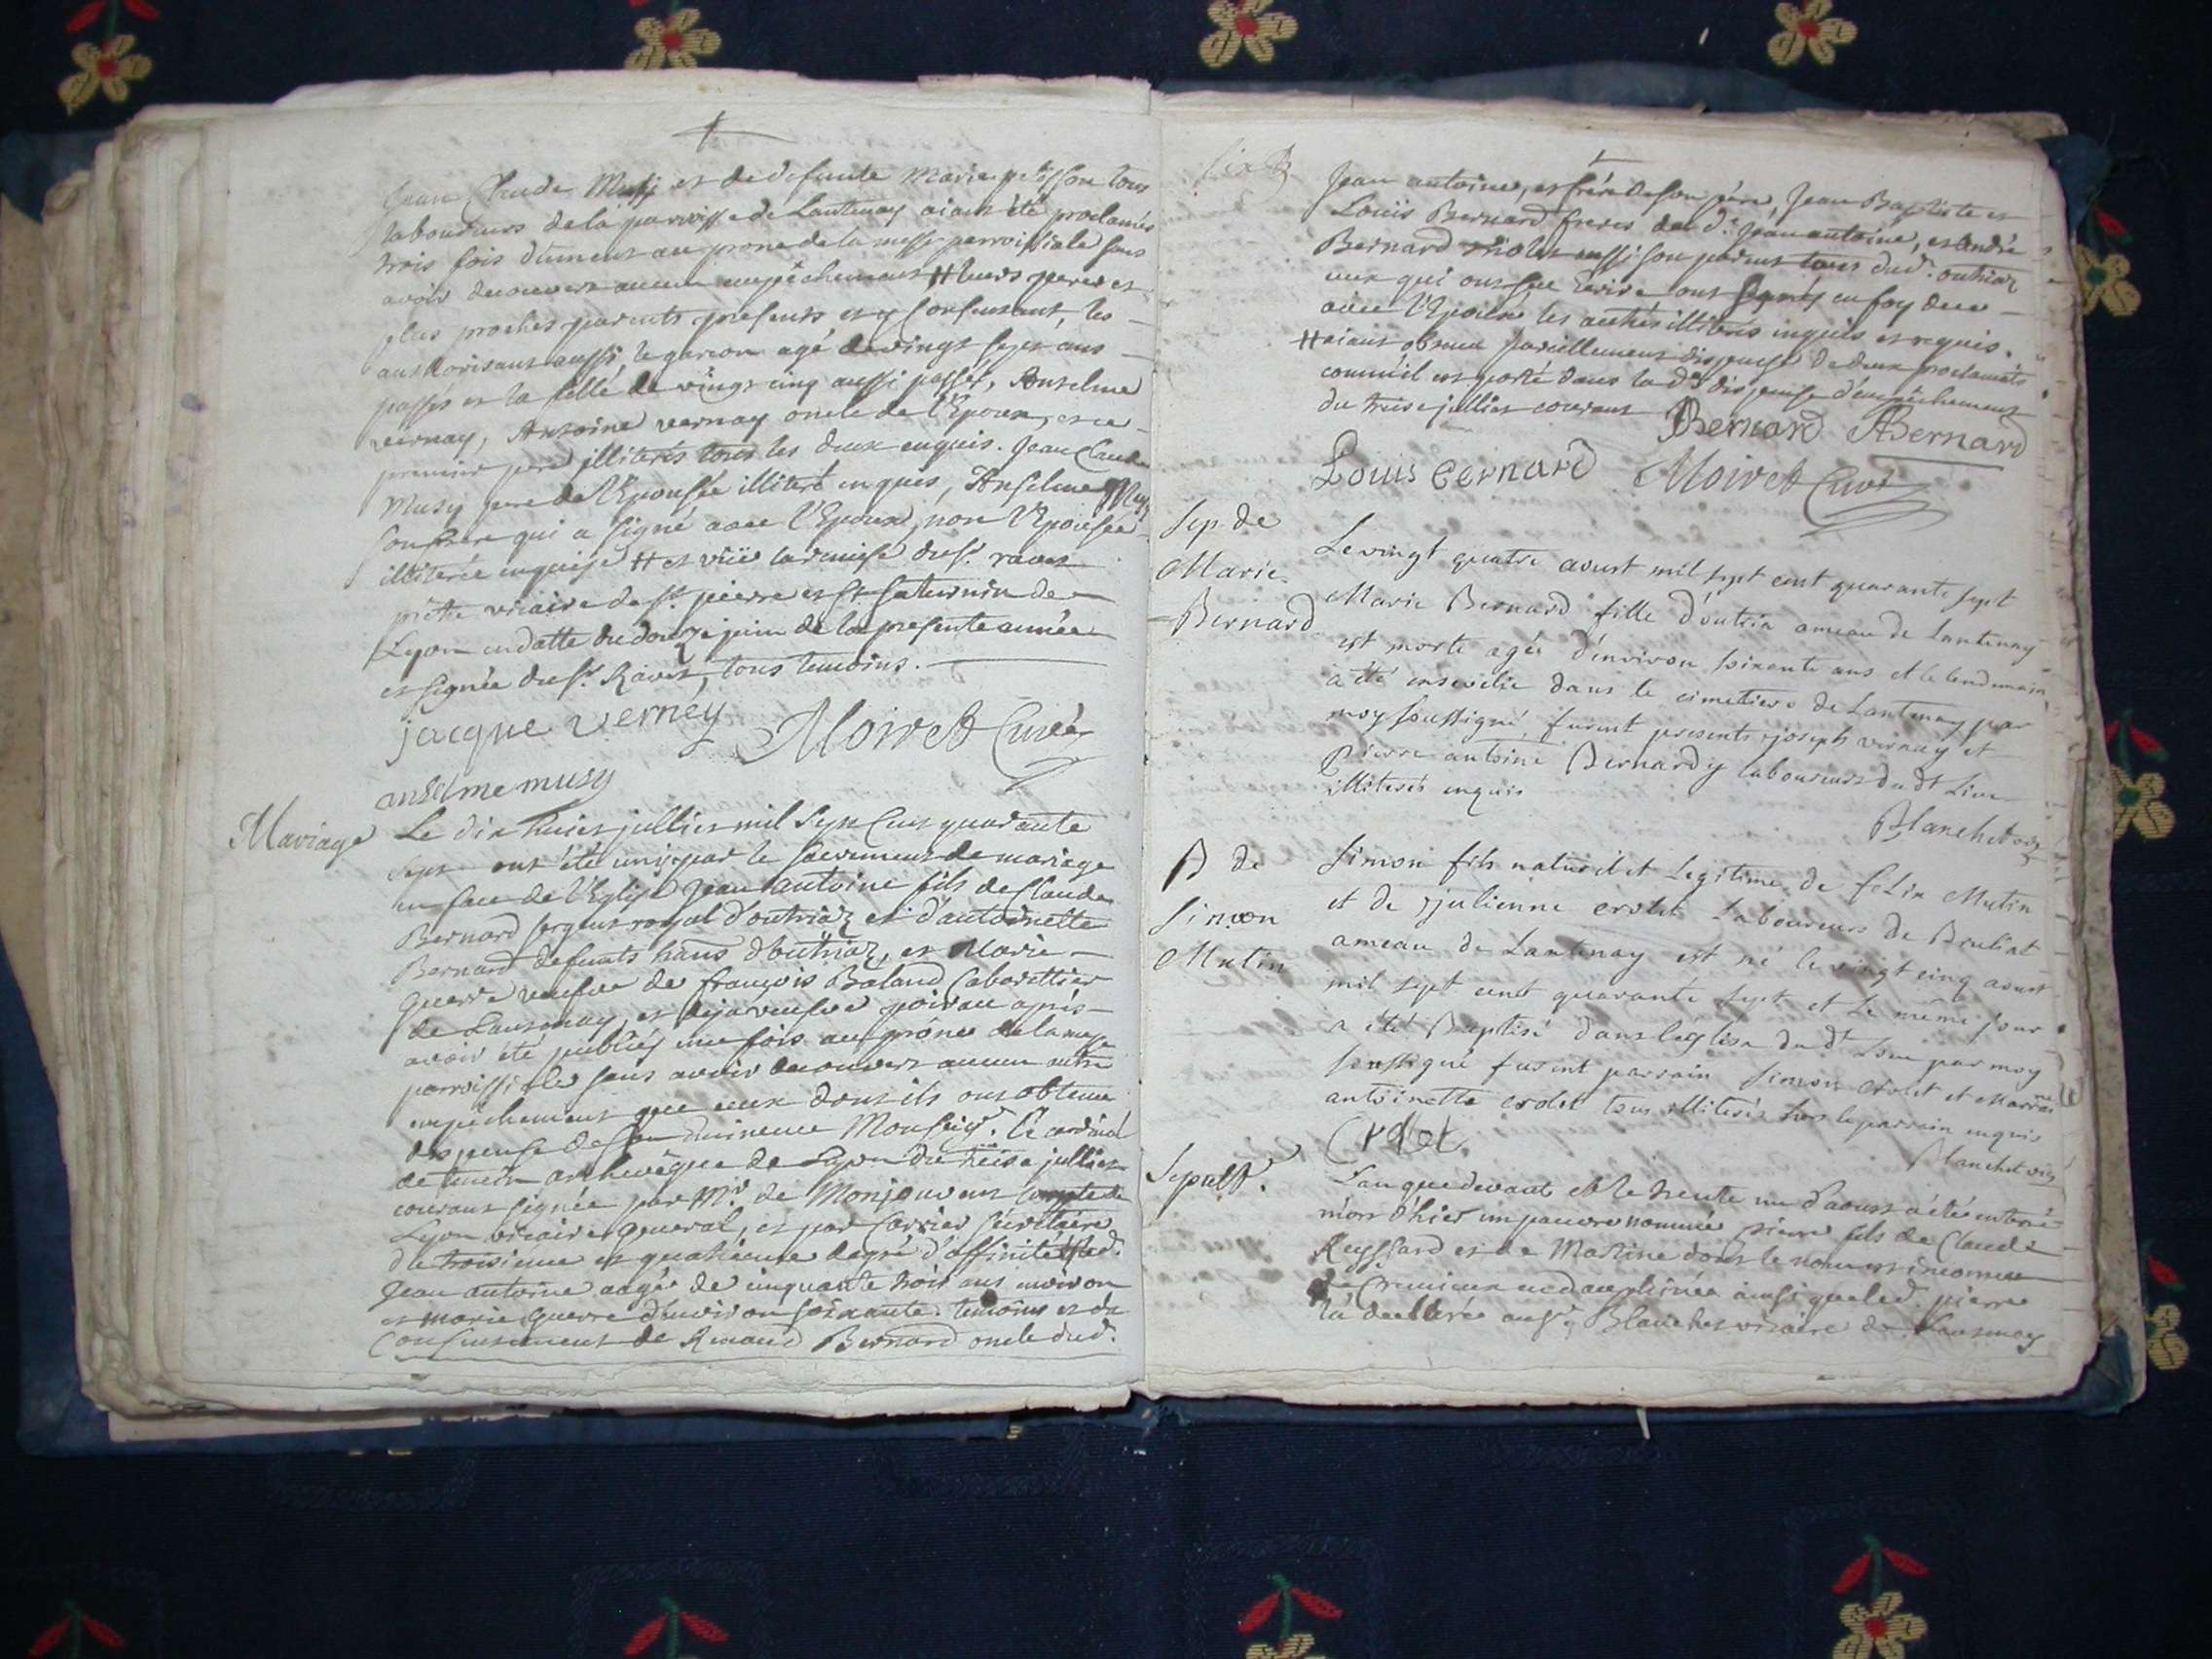 Jean Claude Musy et de defunte Marie pelisson tous
laboureurs de la parroisse de Lantenay aiant été proclamés
trois fois dument au prone de la messe parroissiale sans
avoir decouvert aucun empêchement # leurs peres et
plus proches parents presents et y consentant, les
authorisant aussi, le garcon agé de vingt sept ans
passés et la fille de vingt cinq aussi passés, Anselme
vernay, Antoine vernay oncle de l'Epoux, et ce
premier pere illiterés tous les deux enquis. Jean Claude
Musy pere de l'Epousée illiteré enquis, Anselme Musy
son frere qui a signé avec l'Epoux, non l'Epousée
illiterée enquise # et vüe la remise du Sr. ravet
prêtre vicaire de St. pierre et St saturnin de
Lyon en datte du douze juin de la presente année
et signée du Sr. Ravet, tous temoins.
jacque verney Moiret Curé
anselme musy
Mariage
Le dix huict juillet mil Sept Cent quarante
sept ont été unis par le sacrement de mariage
en face de l'Eglise Jean antoine fils de Claude
Bernard sergent royal d'outriaz et d'antoinette
Bernard defunts d'outriaz, et Marie
Guerre veufve de françois Baland Cabarettier
de Lantenay, et deja veufve poirau après
avoir été publiés une fois au prône de la messe
parroissiale sans avoir decouvert aucun autre
empêchement que ceux dont ils ont obtenu
dispense de Son Eminence Monseigr. le cardinal
de tencin archevêque de Lyon du treise juillet
courant signée par Mr. de Monjouvent Compte de
Lyon vicaire general, et par Carrier secretaire
du troisieme et quatrieme degré d'affinité led.
Jean antoine aagé de cinquante trois ans environ
et marie guerre d'environ soixante. temoins et du
Consentement de Renaud Bernard oncle dud.
Jean antoine, et frere de son pére, Jean Baptiste et
Louïs Bernard freres du d. Jean antoine, et André
Bernard aussi son parent tous dud. outriaz
ceux qui ont sçu écrire ont signés en foy de ce
avec l'Epoux, les autres illiterés enquis et requis.
# aiant obtenu pareillement dispense de deux proclamats
comm'il est porté dans la de. dispense d'empêchement
du treise juillet courant Bernard ABernard
Louis bernard Moiret Curé
Sep. de
Marie
Bernard
Le vingt quatre aoust mil sept cent quarante sept
Marie Bernard fille d'outria ameau de Lantenay
est morte agée d'environ soixante ans et le lendemain
a été ensevelie dans le cimetiere de Lantenay par
moy soussigné, furent presents joseph vernay et
Pierre antoine Bernard y laboureurs du dt Lieu
illiterés enquis
Blanchet vic
B de
Simon
Mutin
Simon fils naturel et Legitime de felix Mutin
et de julienne crolet Laboureurs de Bouliat
ameau de Lantenay est né le vingt cinq aoust
mil sept cent quarante sept et le même jour
a été Baptisé dans l'église du dt Lieu par moy
soussigné furent parrain Simon crolet et Marraine
antoinette crolet tous illiterés hors le parrain enquis
Crolet Blanchet vic
Sepult.
L'an que devant et le trente un d'aoust a été enterré
mort d'hier un pauvre nommé pierre fils de Claude
Reyssard et de Martine dont le nom est inconnu
de Cremieux en dauphinée ainsi que led. pierre
l'a declaré au Sr. Blanchet vicaire de Lantenay